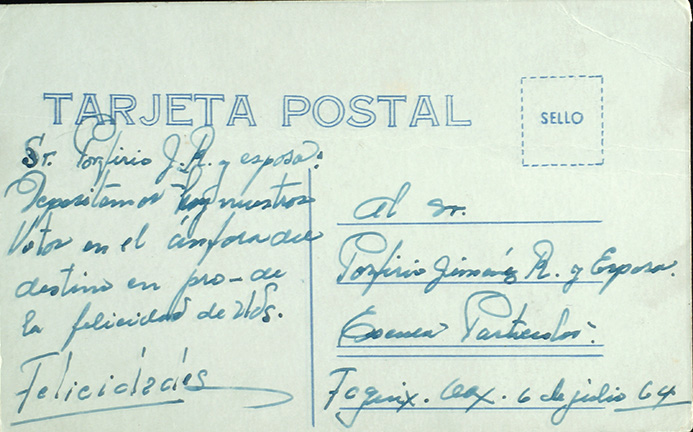 TARJETA POSTAL
SELLO
Sr. Porfirio J. R. y esposa:
Depositamos hoy nuestros
Votos en el ánfora del
destino en pro-de
la felicidad de Uds.
Felicidádes
Al Sr.
Porfirio Jiménez R. y Esposa.
Escuela
. Oax. 6 de julio 64